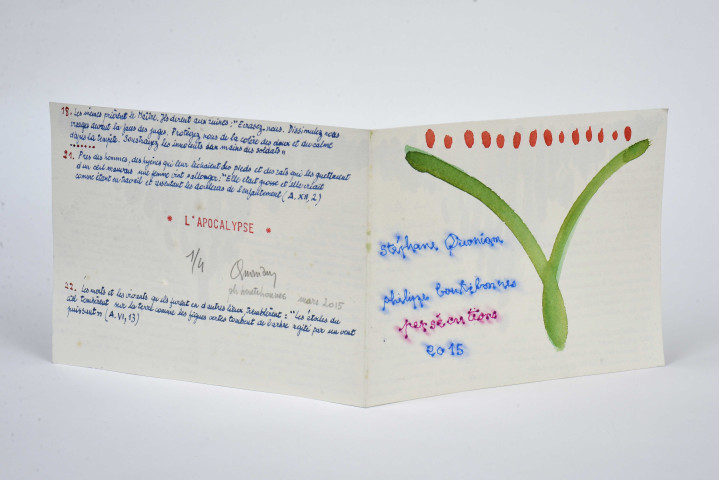 18. Les mêmes prièrent le Maître. Ils dirent aux ruines: "Ecrasez-nous. Dissimulez nos
visages devant la face des juges. Protégez-nous de la colère des cieux et du calme
dans la tempête. Soustrayez les innocents aux mains des soldats»
21. Près des hommes, des hyènes qui leur léchaient les pieds et des rats qui les guettaient
d'un œil mauvais, une femme vint s'allonger: "Elle était grosse et elle criait
comme étant en travail et ressentant les douleurs de l'enfantement (A, XII, 2)
* L'APOCALYPSE *
1/4
ph boutibonnes mars 2015
22. Les morts et les vivants qu'ils furent en d'autres lieux tremblèrent: "Les étoiles du
ciel tombèrent sur la terre comme les figues vertes tombent de l'arbre agité par un vent
puissant» (A, VI, 13)
stéphane Quoniam
philippe boutibonnes
persécutions
2015